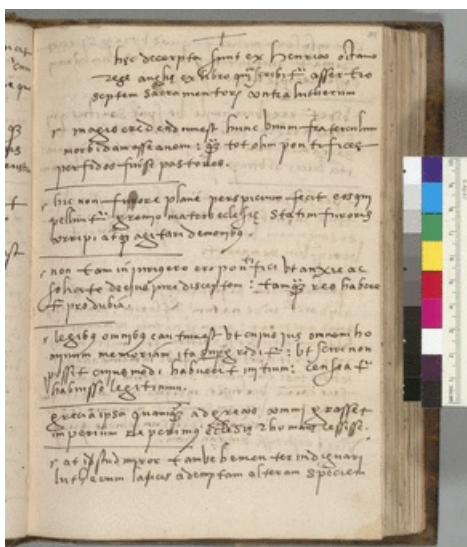 hęc decerpta sunt ex Henrico octavo
rege anglię ex libro qui scribit~ assertio
septem sacramentorꝝ contra lutherum
magis credendum est hunc unum fraterculum
morbidam esse ovem: qꝫ tot olim pontifices
perfidos fuisse pastores.
hic non furore plane perspicuum fecit eos qui
pellunt~ e gremio matris ecclesię statim furoris
corripi atqꝫ agitari demonibꝰ.
non tam ero pontifici ut anxie ac
solicite de eius iure disceptem: tamqꝫ res habere
t~ pro dubia.
legibꝰ omnibꝰ cautum est ut cuius ius omnem ho
minum memoriam ita ut sciri non
possit cuiusmodi habuerit initium: censeat~
habuisse legitimum.
grecia ipsa quamqꝫ ad grecos commigrasset
imperium reperimꝰ ecclesię rhomanę cessisse.
at istud miror tam vehementer indignari
lutherum laicis ademptam alteram speciem